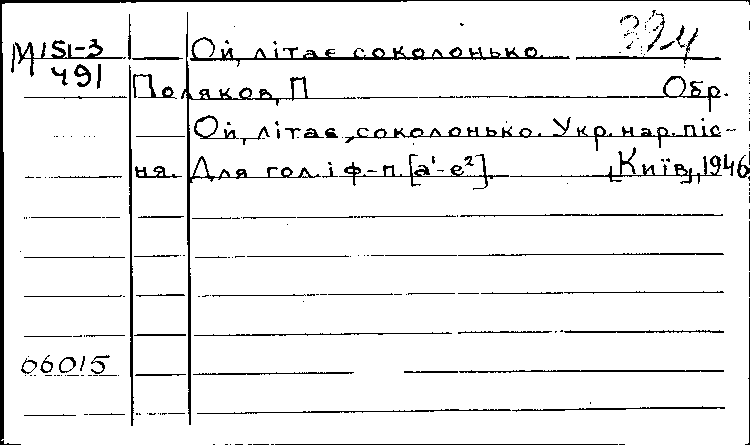 М 151-3 Ой, літає соколонько. 394
491
Поляков, П Обр.
Ой, літає, соколонько. Укр. нар. піс-
ня. Для гол. і ф.-п. [а¹-е²]. [Київ], 1946
06015